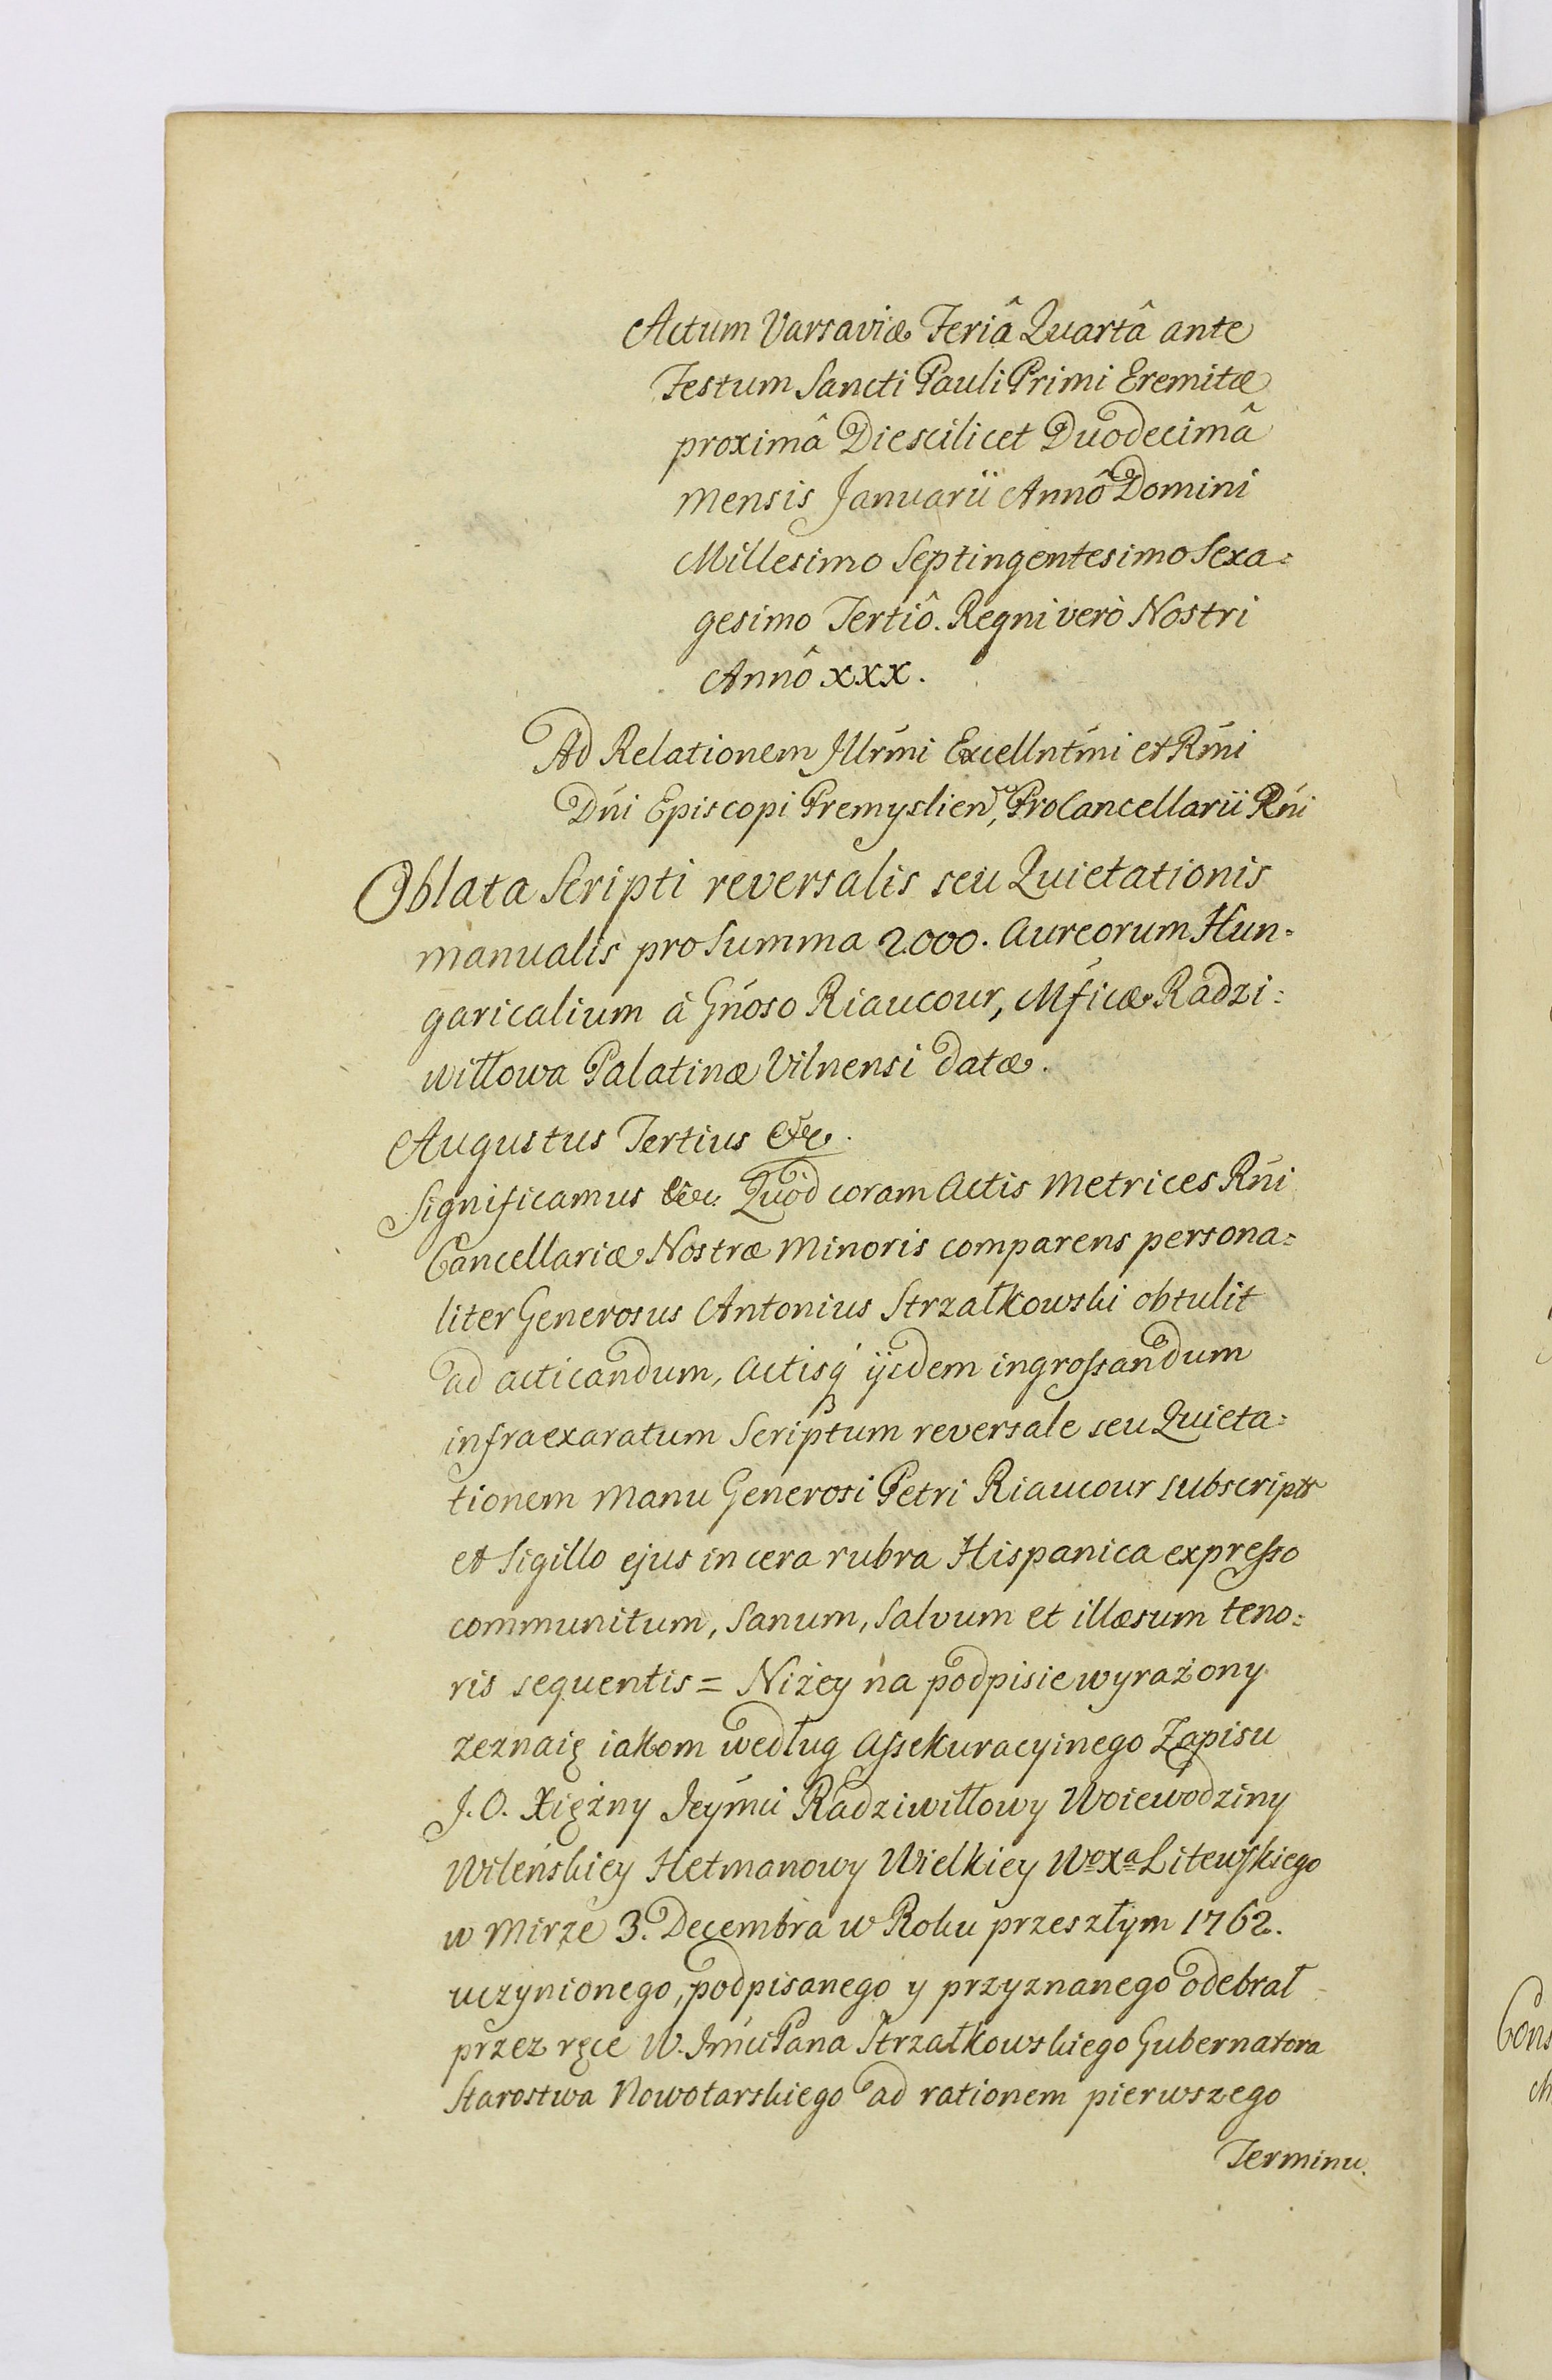 Actum Varsaviæ Feriâ Quartâ ante
Festum Sancti Pauli Primi Eremitæ
proximâ Die scilicet Duodecimâ
mensis Januarii Annô Domini
Millesimo Septingentesimo Sexa=
gesimo Tertiô. Regni verò Nostri
Annô XXX.
Ad Relationem Illrmi Excellntmi et Rmi
Dni Episcopi Premyslien, ProCancellarii Rni
Oblata Scripti reversalis seu Quietationis
manualis pro Summa 2000. Aureorum Hun=
garicalium à Gnoso Riaucour, Mficæ Radzi=
wiłłowa Palatinæ Vilnensi datæ.
Augustus Tertius &c.
Significamus &c. Quod coram Actis Metrices Rni
Cancellariæ Nostræ Minoris comparens persona=
liter Generosus Antonius Strzałkowski obtulit
ad acticandum, Actisq ijsdem ingrossandum
infraexaratum Scriptum reversale seu Quieta=
tionem manu Generosi Petri Riaucour subscript
et Sigillo ejus in cera rubra Hispanica expresso
communitum, Sanum, Salvum et illæsum teno=
ris sequentis = Niżey na podpisie wyrażony
zeznaię iakom według Assekuracyinego Zapisu
J. O. Xiężny Jeymći Radziwiłłowy Woiewodziny
Wileńskiey Hetmanowy Wielkiey Wo Xa Litewskiego
w Mirze 3. Decembra w Roku przeszłym 1762.
uczynionego, podpisanego y przyznanego odebrał
przez ręce W. Jmći Pana Strzałkowskiego Gubernatora
Starostwa Nowotarskiego ad rationem pierwszego
Terminu.